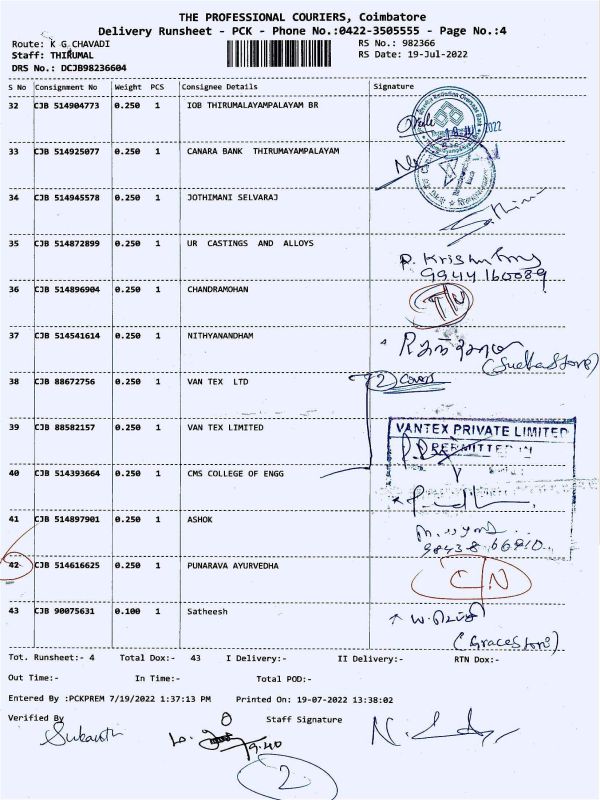 THE PROFESSIONAL COURIERS, Coimbatore
Delivery Runsheet - PCK - Phone No.:0422-3505555 - Page No.:4
Route: K G CHAVADI
RS No.: 982366
Staff: THIRUMAL
RS Date: 19-Jul-2022
DRS No.: DCJB98236604
S No Consignment No Weight PCS Consignee Details Signature
32 CJB 514904773 0.250 1 IOB THIRUMALAYAMPALAYAM BR
2022
33 CJB 514925077 0.250 1 CANARA BANK THIRUMAYAMPALAYAM
34 CJB 514945578 0.250 1 JOTHIMANI SELVARAJ
35 CJB 514872899 0.250 1 UR CASTINGS AND ALLOYS
9944160089
36 CJB 514896904 0.250 1 CHANDRAMOHAN
37 CJB 514541614 0.250 1 NITHYANANDHAM
38 CJB 88672756 0.250 1 VAN TEX LTD
2 Covers
39 CJB 88582157 0.250 1 VAN TEX LIMITED
VANTEX PRIVATE LIMITED
PERMITTED IN
40 CJB 514393664 0.250 1 CMS COLLEGE OF ENGG
41 CJB 514897901 0.250 1 ASHOK
98438 66910
42 CJB 514616625 0.250 1 PUNARAVA AYURVEDHA
C/N
43 CJB 90075631 0.100 1 Satheesh
Tot. Runsheet:- 4 Total Dox:- 43 I Delivery:- II Delivery:- RTN Dox:-
Out Time:- In Time:- Total POD:-
Entered By :PCKPREM 7/19/2022 1:37:13 PM Printed On: 19-07-2022 13:38:02
Verified By Staff Signature
2